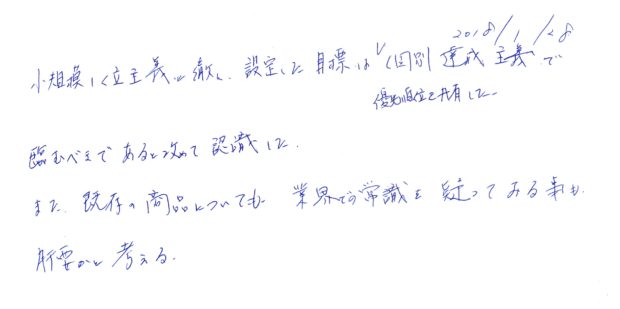 2018/1/28
小規模しく立主義に徹し、設定した目標は、個別達成主義で
優先順位を共有した
臨むべきであると改めて認識した。
また、既存の商品についても、業界での常識を疑ってみる事も、
肝要かと考える。